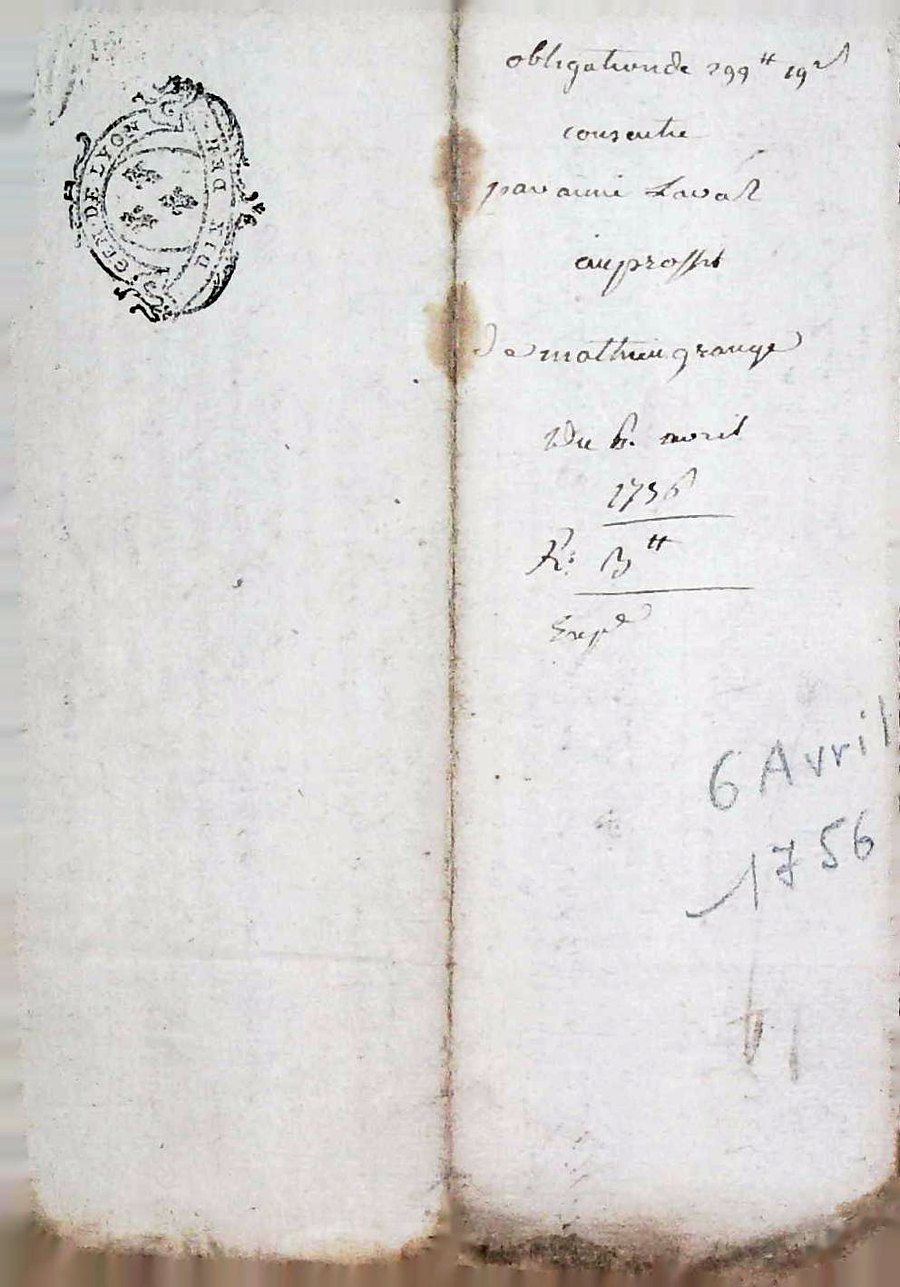 GEN DE LYON
DIX DEN
obligation de 299 ₶ 19 s
consentie
par anne Laval
au proffit
de mathieu grange
Du 6. avril
1756
R: 3 ₶
Exp
6 Avril
1756